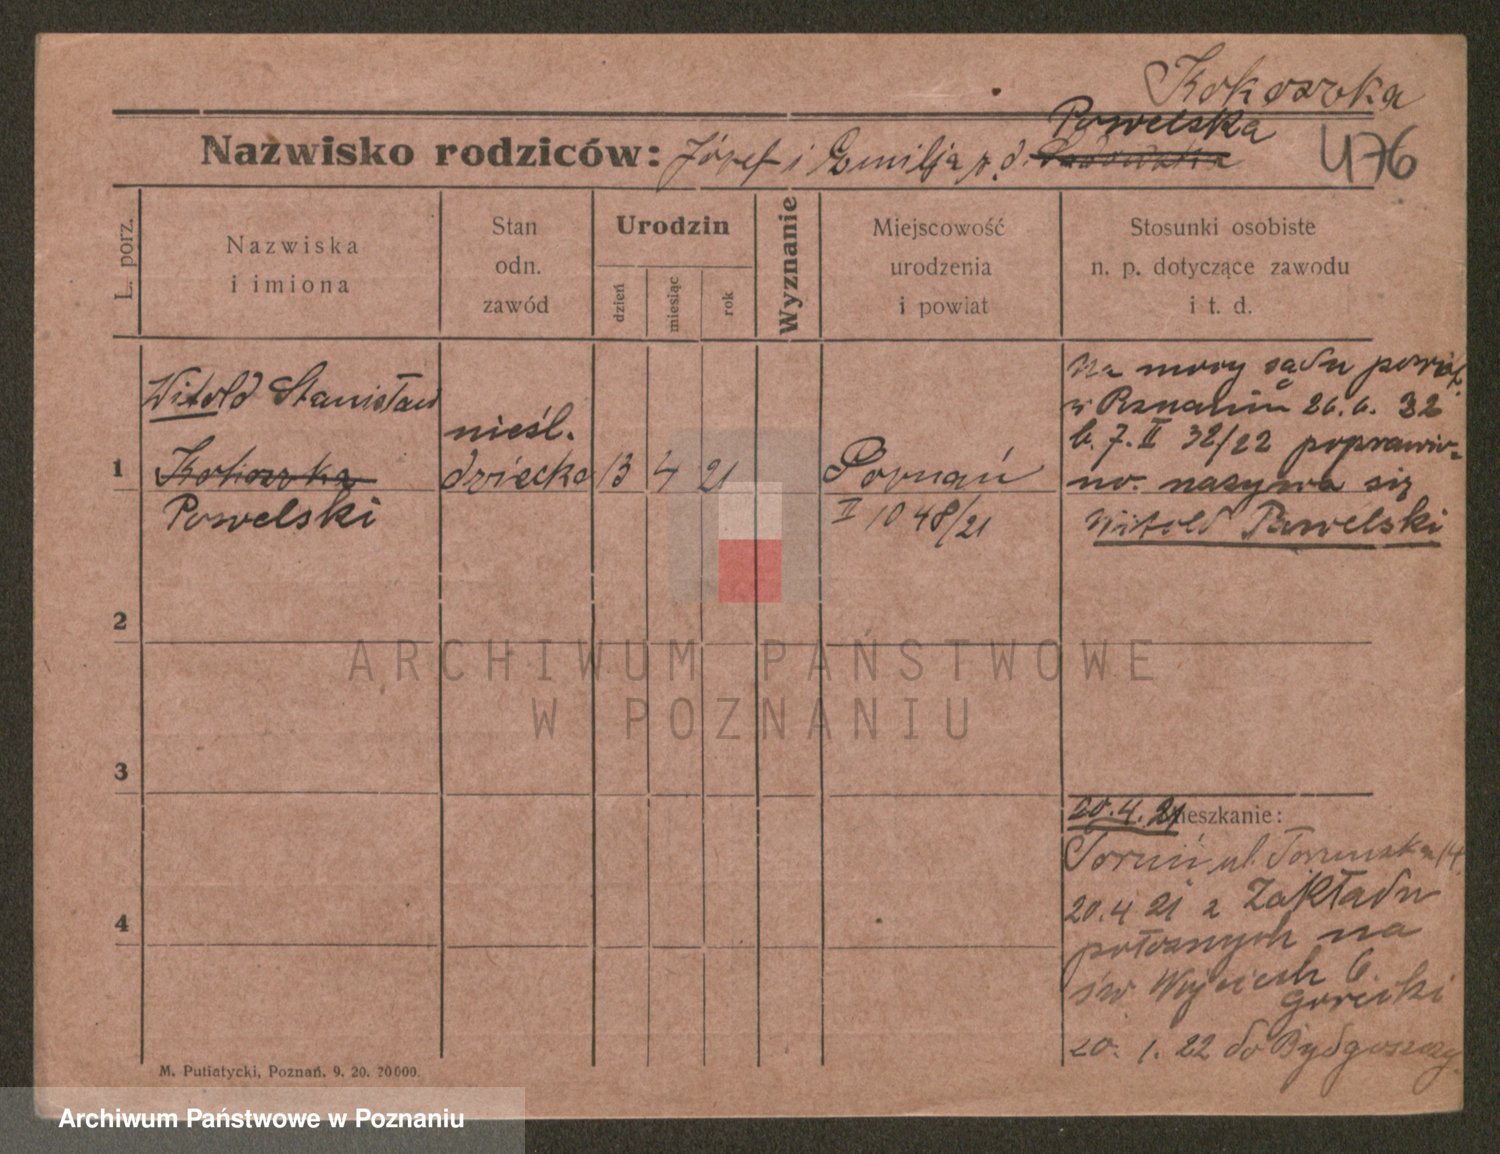 Kokoszka
Powelska
Nazwisko rodziców: Józef i Emilja z. d.
476
L. porz.
Nazwiska
i imiona
Stan
odn.
zawód
Urodzin
dzień
miesiąc
rok
Wyznanie
Miejscowość
urodzenia
i powiat
Stosunki osobiste
n. p. dotyczące zawodu
i t. d.
Witold Stanisław
1 Kokoszka
Powelski
nieśl.
dziecko 13 4 21
Poznań
II 1048/21
Na mocy sądu powiat.
w Poznaniu 26.6. 32
l. 7. II 32/22 poprawio-
no. nazywa się
Witold Pawelski
2
3
4
20.4.21 Mieszkanie:
Toruń ul. Toruńska 14
20.4 21 z Zakładu
położnych na
św. Wojciech 6.
Gorecki
20. 1. 22 do Bydgoszczy
M. Putiatycki, Poznań, 9. 20. 20000.
ARCHIWUM PAŃSTWOWE
W POZNANIU
Archiwum Państwowe w Poznaniu